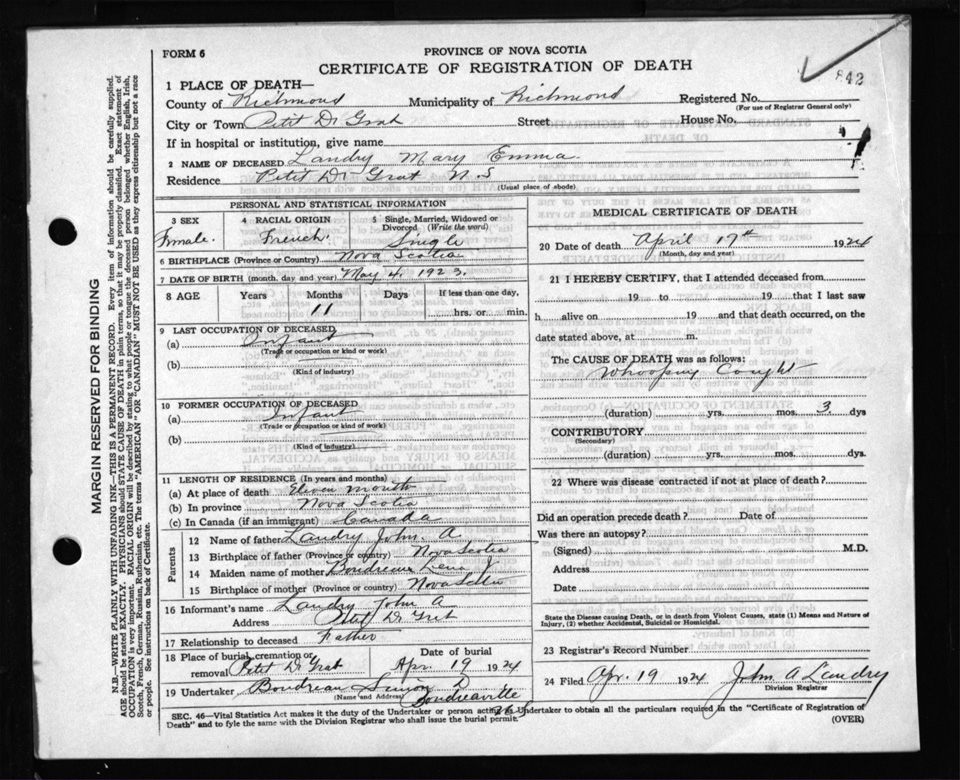 FORM 6
PROVINCE OF NOVA SCOTIA
CERTIFICATE OF REGISTRATION OF DEATH
842
1 PLACE OF DEATH—
County of Richmond Municipality of Richmond Registered No.
(For use of Registrar General only)
City or Town Petit D. Grat Street House No.
If in hospital or institution, give name
2 NAME OF DECEASED Landry Mary Emma
Residence Petit D. Grat N.S
(Usual place of abode)
PERSONAL AND STATISTICAL INFORMATION
3 SEX 4 RACIAL ORIGIN 5 Single, Married, Widowed or Divorced (Write the word)
Female. French. Single
6 BIRTHPLACE (Province or Country) Nova Scotia
7 DATE OF BIRTH (month, day and year) May 4. 1923.
8 AGE Years Months Days If less than one day,
11 hrs. or min.
9 LAST OCCUPATION OF DECEASED
(a) Infant
(Trade or occupation or kind or work)
(b)
(Kind of industry)
10 FORMER OCCUPATION OF DECEASED
(a) Infant
(Trade or occupation or kind or work)
(b)
(Kind of industry)
11 LENGTH OF RESIDENCE (In years and months)
(a) At place of death Eleven months
(b) In province Nova Scotia
(c) In Canada (if an immigrant) Canada
Parents
12 Name of father Landry John. A.
13 Birthplace of father (Province or country) Nova Scotia
14 Maiden name of mother Boudreau Lena J
15 Birthplace of mother (Province or country) Nova Scotia
16 Informant's name Landry John A
Address Petit D. Grat
17 Relationship to deceased Father
18 Place of burial, cremation or removal Petit D. Grat
Date of burial
Apr. 19 1924
19 Undertaker Boudreau Simon D
(Name and Address) Boudreauville
N.S
MEDICAL CERTIFICATE OF DEATH
20 Date of death April 17th 1924
(Month, day and year)
21 I HEREBY CERTIFY, that I attended deceased from
19 to 19 that I last saw
h alive on 19 and that death occurred, on
date stated above, at m.
The CAUSE OF DEATH was as follows:
Whooping Cough
(duration) yrs. mos. 3 dys
CONTRIBUTORY
(Secondary)
(duration) yrs. mos. dys.
22 Where was disease contracted if not at place of death?
Did an operation precede death? Date of
Was there an autopsy?
(Signed) M.D.
Address
Date
State the Disease causing Death, or in death from Violent Causes, state (1) Means and Nature of
Injury, (2) whether Accidental, Suicidal or Homicidal.
23 Registrar's Record Number
24 Filed Apr. 19 1924 John A Landry
Division Registrar
SEC. 46—Vital Statistics Act makes it the duty of the Undertaker or person acting as Undertaker to obtain all the particulars required in the "Certificate of Registration of
Death" and to fyle the same with the Division Registrar who shall issue the burial permit.
(OVER)
MARGIN RESERVED FOR BINDING
N.B.—WRITE PLAINLY WITH UNFADING INK—THIS IS A PERMANENT RECORD. Every item of information should be carefully supplied.
AGE should be stated EXACTLY. PHYSICIANS should STATE CAUSE OF DEATH in plain terms, so that it may be properly classified. Exact statement of
OCCUPATION is very important. RACIAL ORIGIN will be described by stating to what people or tongue the deceased person belonged whether English, Irish,
Scotch, French, German, Russian, Ruthenian, etc. The terms "AMERICAN" OR "CANADIAN" MUST NOT BE USED as they express citizenship but not a race
or people. See instructions on back of Certificate.